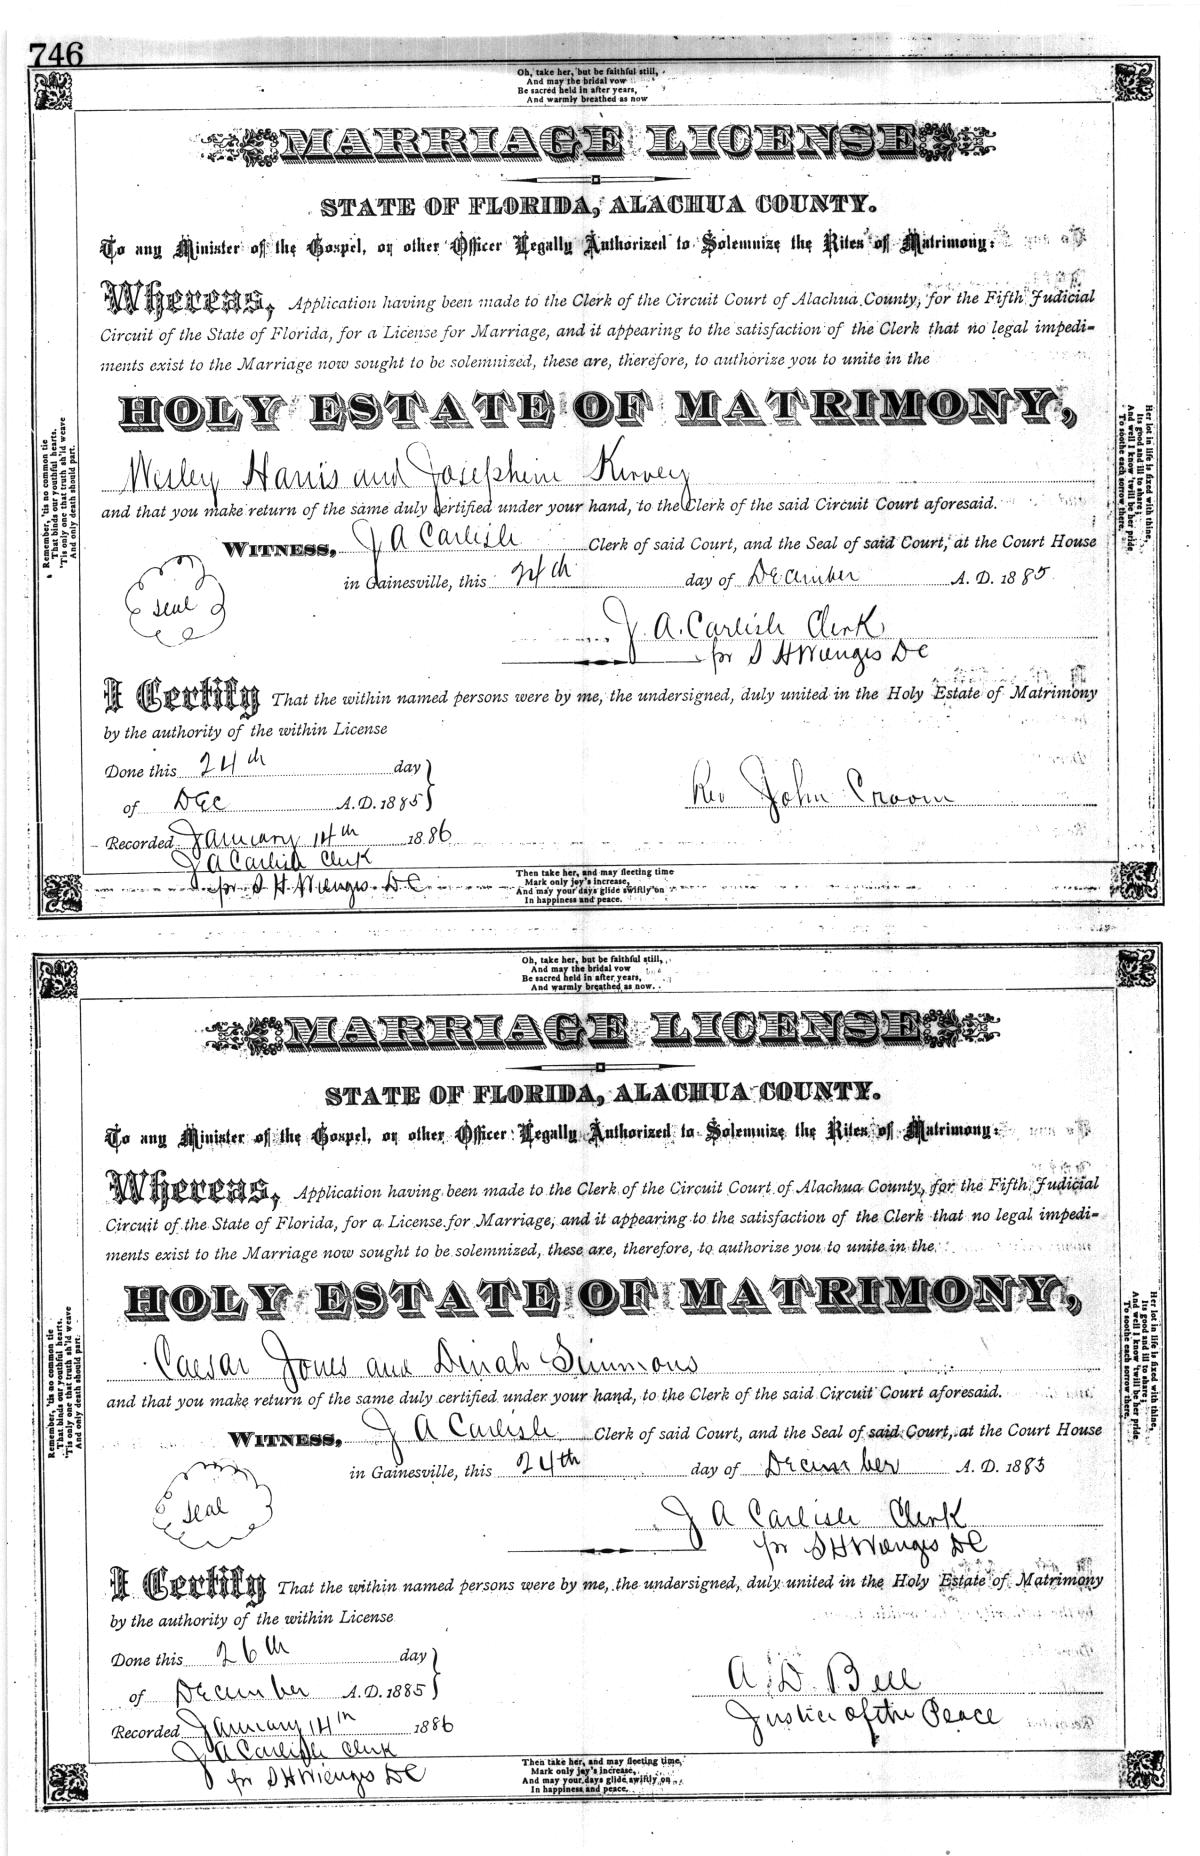 746
Oh, take her, but be faithful still,
And may the bridal vow
Be sacred held in after years,
And warmly breathed as now
MARRIAGE LICENSE
STATE OF FLORIDA, ALACHUA COUNTY.
To any Minister of the Gospel, or other Officer Legally Authorized to Solemnize the Rites of Matrimony:
Whereas, Application having been made to the Clerk of the Circuit Court of Alachua County, for the Fifth Judicial
Circuit of the State of Florida, for a License for Marriage, and it appearing to the satisfaction of the Clerk that no legal impedi-
ments exist to the Marriage now sought to be solemnized, these are, therefore, to authorize you to unite in the
HOLY ESTATE OF MATRIMONY,
Wesley Harris and Josephine Kirvey
and that you make return of the same duly certified under your hand, to the Clerk of the said Circuit Court aforesaid.
WITNESS, J A Carlisle Clerk of said Court, and the Seal of said Court, at the Court House
in Gainesville, this 24th day of December A. D. 1885
Seal
J. A. Carlisle Clerk
pr S H Wienges DC
I Certify That the within named persons were by me, the undersigned, duly united in the Holy Estate of Matrimony
by the authority of the within License
Done this 24th day
of Dec A. D. 1885
Rev John Croom
Recorded January 14th 1886
J A Carlisle Clerk
pr S H Wienges DC
Remember, 'tis no common tie
That binds our youthful hearts,
'Tis only one that truth sh'ld weave
And only death should part.
Her lot in life is fixed with thine,
Its good and ill to share;
And well I know 'twill be her pride
To soothe each sorrow there.
Then take her, and may fleeting time
Mark only joy's increase,
And may your days glide swiftly on
In happiness and peace.
Oh, take her, but be faithful still,
And may the bridal vow
Be sacred held in after years,
And warmly breathed as now.
MARRIAGE LICENSE
STATE OF FLORIDA, ALACHUA COUNTY.
To any Minister of the Gospel, or other Officer Legally Authorized to Solemnize the Rites of Matrimony:
Whereas, Application having been made to the Clerk of the Circuit Court of Alachua County, for the Fifth Judicial
Circuit of the State of Florida, for a License for Marriage, and it appearing to the satisfaction of the Clerk that no legal impedi-
ments exist to the Marriage now sought to be solemnized, these are, therefore, to authorize you to unite in the
HOLY ESTATE OF MATRIMONY,
Caesar Jones and Dinah Simmons
and that you make return of the same duly certified under your hand, to the Clerk of the said Circuit Court aforesaid.
WITNESS, J A Carlisle Clerk of said Court, and the Seal of said Court, at the Court House
in Gainesville, this 24th day of December A. D. 1885
Seal
J A Carlisle Clerk
pr S H Wienges DC
I Certify That the within named persons were by me, the undersigned, duly united in the Holy Estate of Matrimony
by the authority of the within License
Done this 26th day
of December A. D. 1885
A. D. Bell
Justice of the Peace
Recorded January 14th 1886
J A Carlisle Clerk
pr S H Wienges DC
Remember, 'tis no common tie
That binds our youthful hearts,
'Tis only one that truth sh'ld weave
And only death should part.
Her lot in life is fixed with thine,
Its good and ill to share;
And well I know 'twill be her pride
To soothe each sorrow there.
Then take her, and may fleeting time,
Mark only joy's increase,
And may your days glide swiftly on
In happiness and peace.